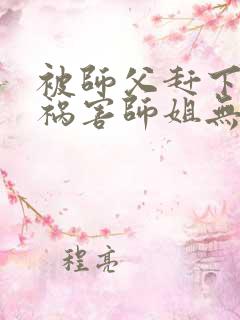 被師父赶下
祸害師姐無
程亮